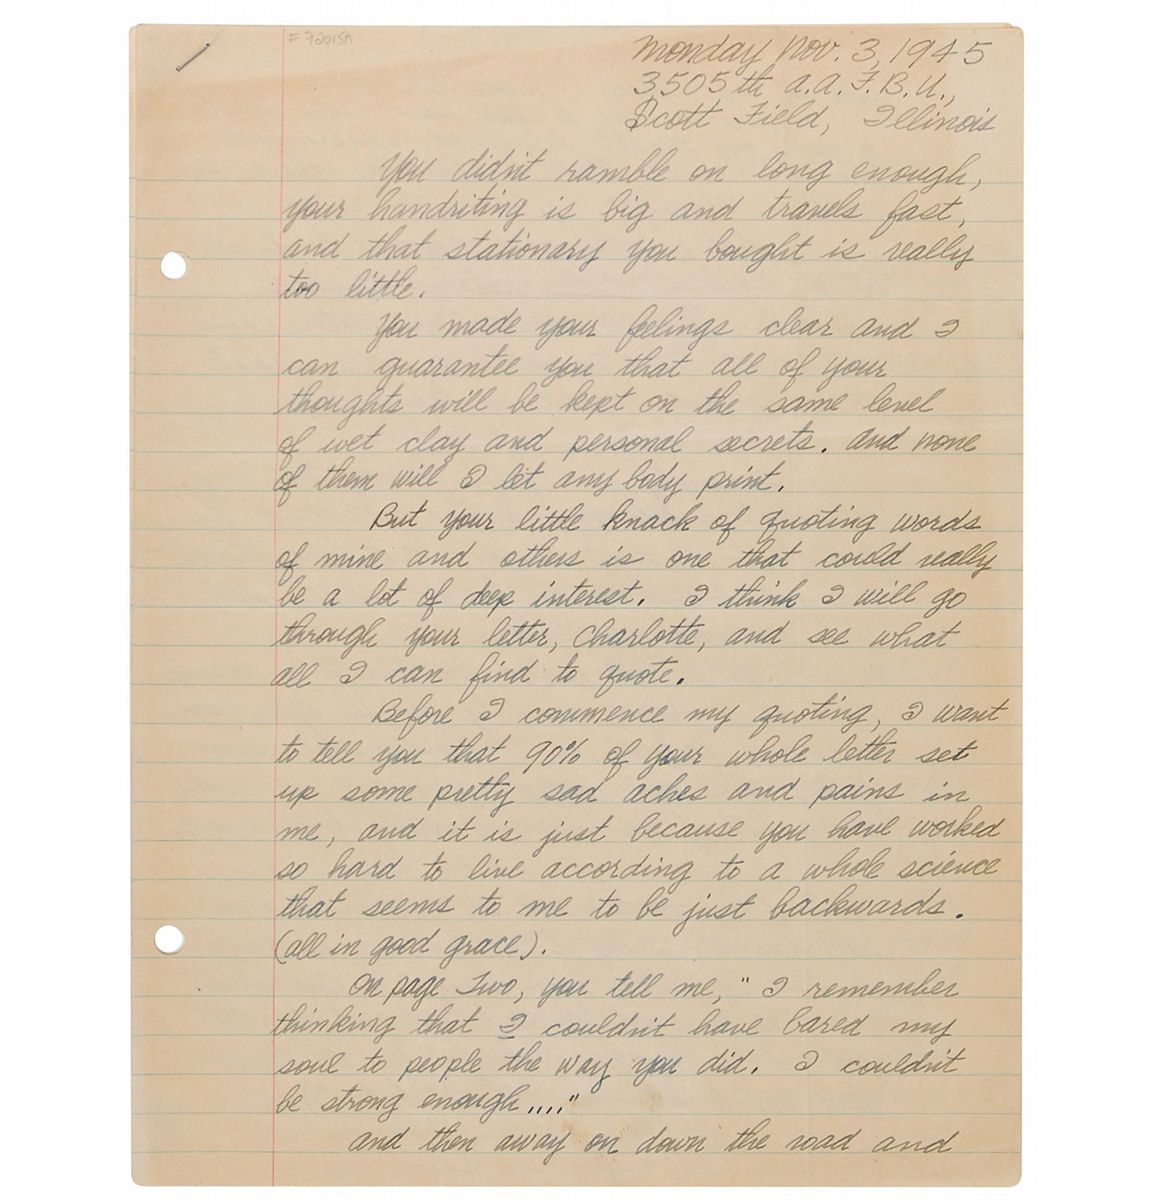 # 72015A
Monday Nov. 3, 1945
3505th A.A.F.B.U.,
Scott Field, Illinois
You didn't ramble on long enough,
your handriting is big and travels fast,
and that stationary you bought is really
too little.
You made your feelings clear and I
can guarantee you that all of your
thoughts will be kept on the same level
of wet clay and personal secrets. And none
of them will I let any body print.
But your little knack of quoting words
of mine and others is one that could really
be a lot of deep interest. I think I will go
through your letter, Charlotte, and see what
all I can find to quote.
Before I commence my quoting, I want
to tell you that 90% of your whole letter set
up some pretty sad aches and pains in
me, and it is just because you have worked
so hard to live according to a whole science
that seems to me to be just backwards.
(all in good grace).
On page Two, you tell me, " I remember
thinking that I couldn't have bared my
soul to people the way you did. I couldn't
be strong enough,,,,"
And then away on down the road and